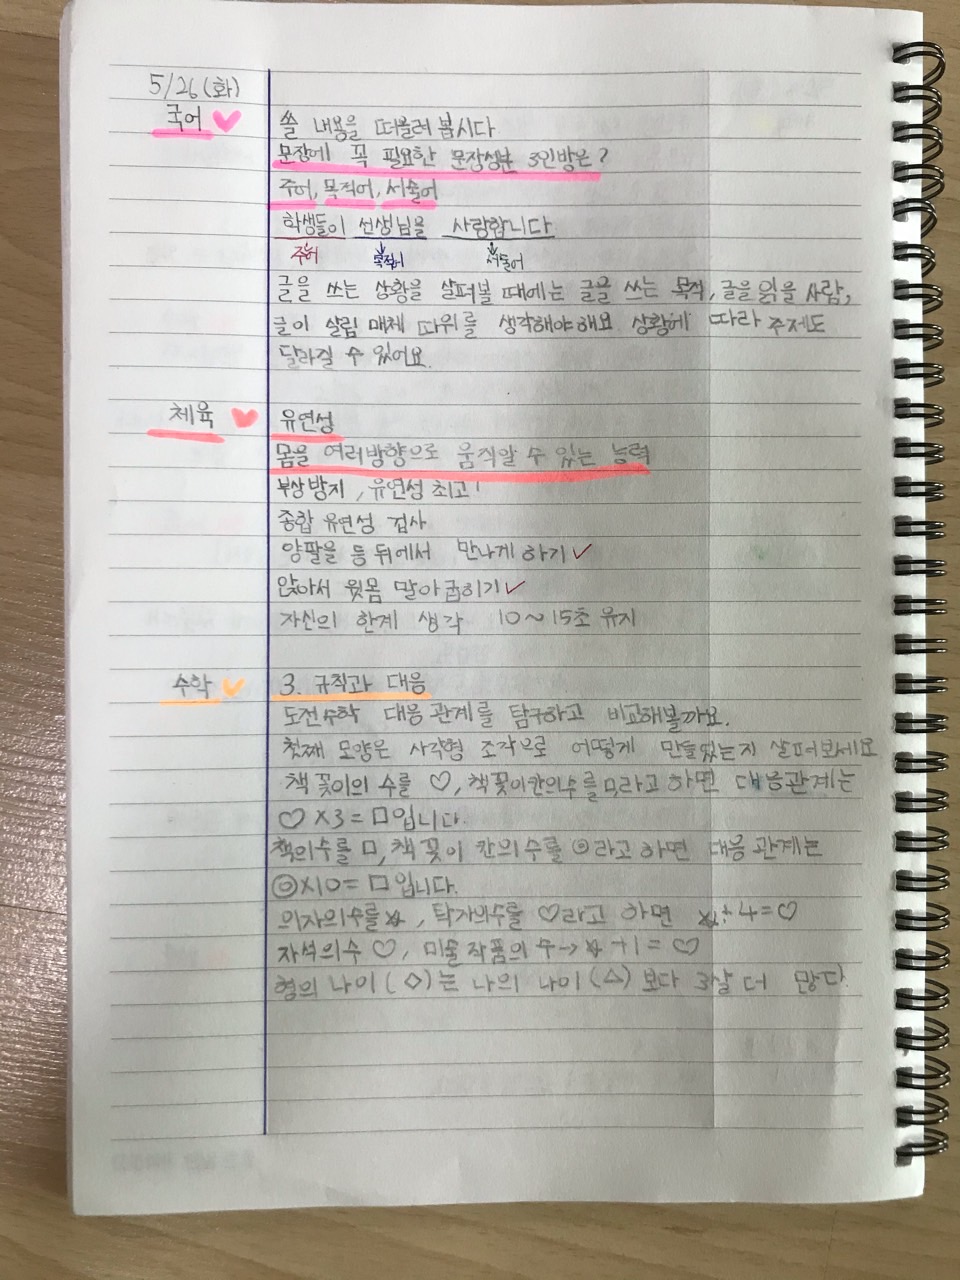 5/26(화)
국어 ♥
쓸 내용을 떠올려 봅시다
문장에 꼭 필요한 문장성분 3인방은?
주어, 목적어, 서술어
학생들이 선생님을 사랑합니다
주어 목적어 서술어
글을 쓰는 상황을 살펴볼 때에는 글을 쓰는 목적, 글을 읽을 사람,
글이 실릴 매체 따위를 생각해야해요 상황에 따라 주제도
달라질 수 있어요.
체육 ♥ 유연성
몸을 여러방향으로 움직일 수 있는 능력
부상방지, 유연성 최고!
종합 유연성 검사
양팔을 등 뒤에서 만나게 하기✓
앉아서 윗몸 말아굽히기✓
자신의 한계 생각 10~15초 유지
수학 ✓ 3. 규칙과 대응
도전수학 대응 관계를 탐구하고 비교해볼까요.
첫째 모양은 사각형 조각으로 어떻게 만들었는지 살펴보세요
책꽂이의 수를 ♡, 책꽂이칸의수를 □라고 하면 대응관계는
♡×3=□입니다.
책의수를 □, 책꽂이 칸의수를 ◎라고 하면 대응 관계는
◎×10=□입니다.
의자의수를☆, 탁자의수를 ♡라고 하면 ☆÷4=♡
자석의수 ♡, 미술 작품의 수→☆+1=♡
형의 나이(◇)는 나의 나이(△)보다 3살 더 많다.